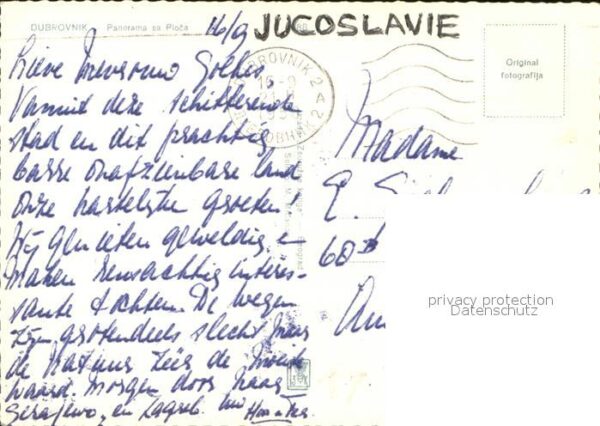 DUBROVNIK Panorama sa Ploča
16/9
JUGOSLAVIE
Lieve Mevrouw
Vanuit deze schitterende
stad en dit prachtig
barre onafzienbare land
onze hartelijke groeten.
Wij genieten geweldig en
maken reusachtig interes-
sante tochten. De wegen
zijn grotendeels slecht maar
de natuur zéér de moeite
waard. Morgen door naar
Serajewo, en Zagreb.
DUBROVNIK 2
Original
fotografija
Madame
60
privacy protection
Datenschutz